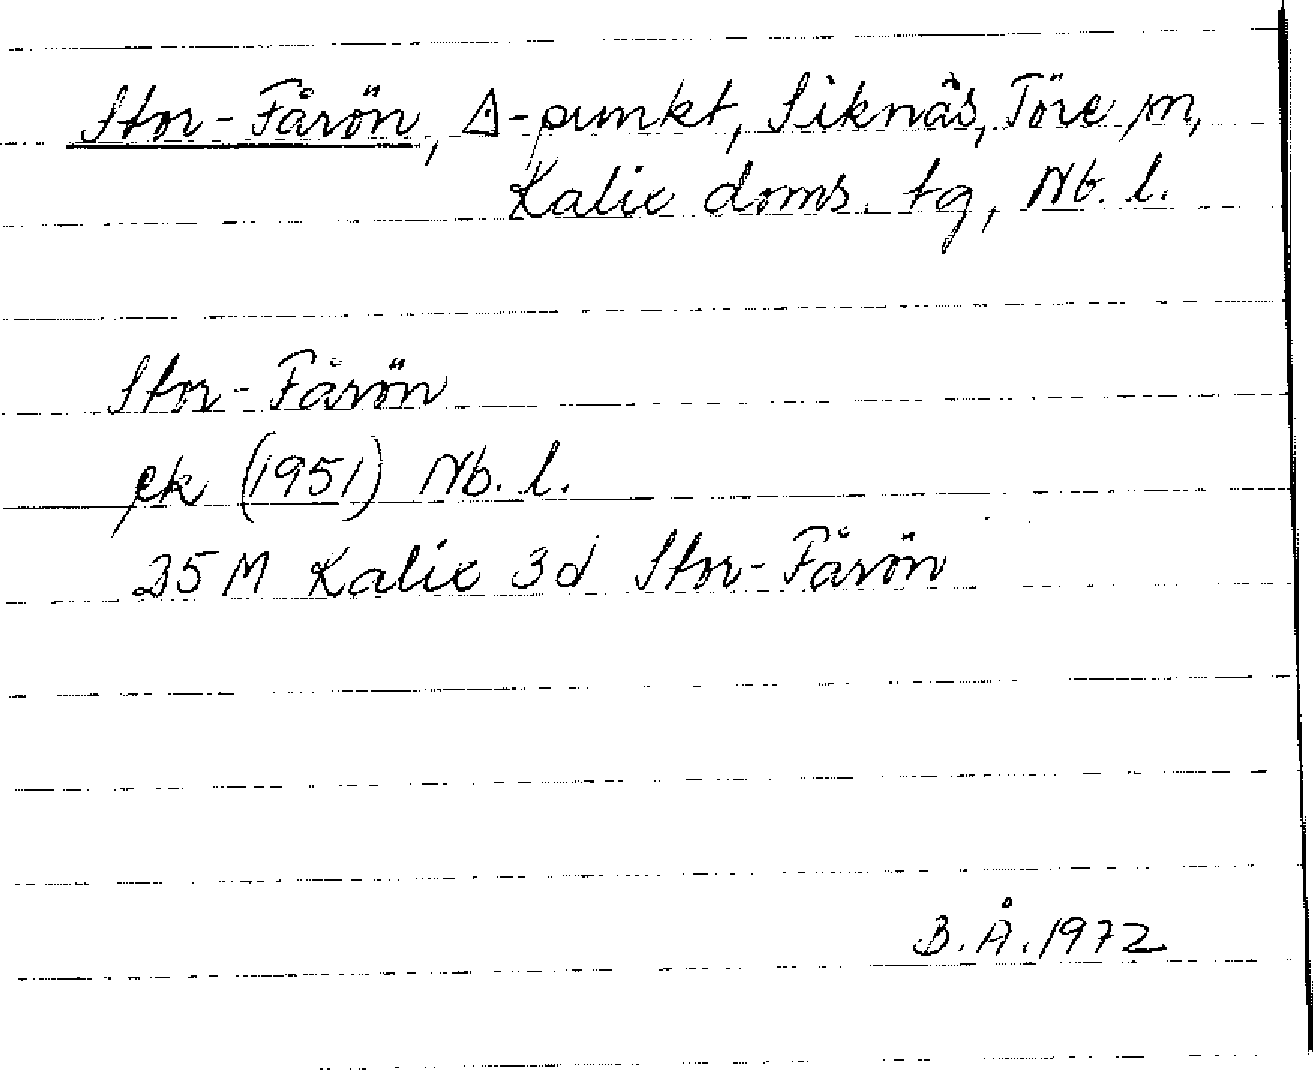 Stor-Fårön, △-punkt, Siknäs, Töre sn,
Kalix doms. tg, Nb. l.
Stor-Fårön
ek (1951) Nb. l.
25 M Kalix 3d Stor-Fårön
B.Å. 1972